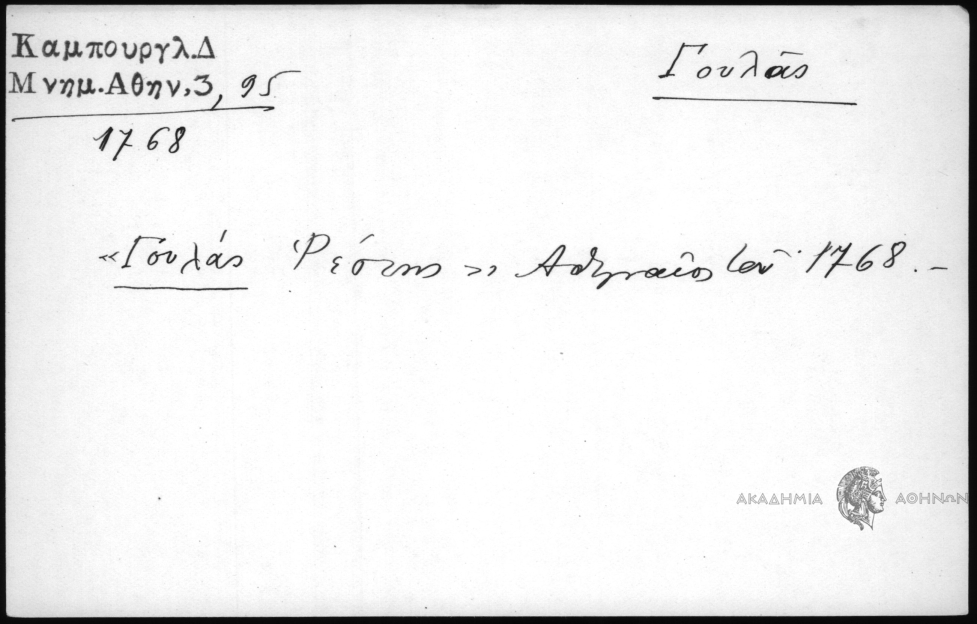 Καμπουργλ.Δ
Μνημ.Αθην.3, 95
1768
Γουλᾶς
«Γουλάς Ρέστης» Ἀθηναῖος τοῦ 1768.–
ΑΚΑΔΗΜΙΑ ΑΘΗΝΩΝ